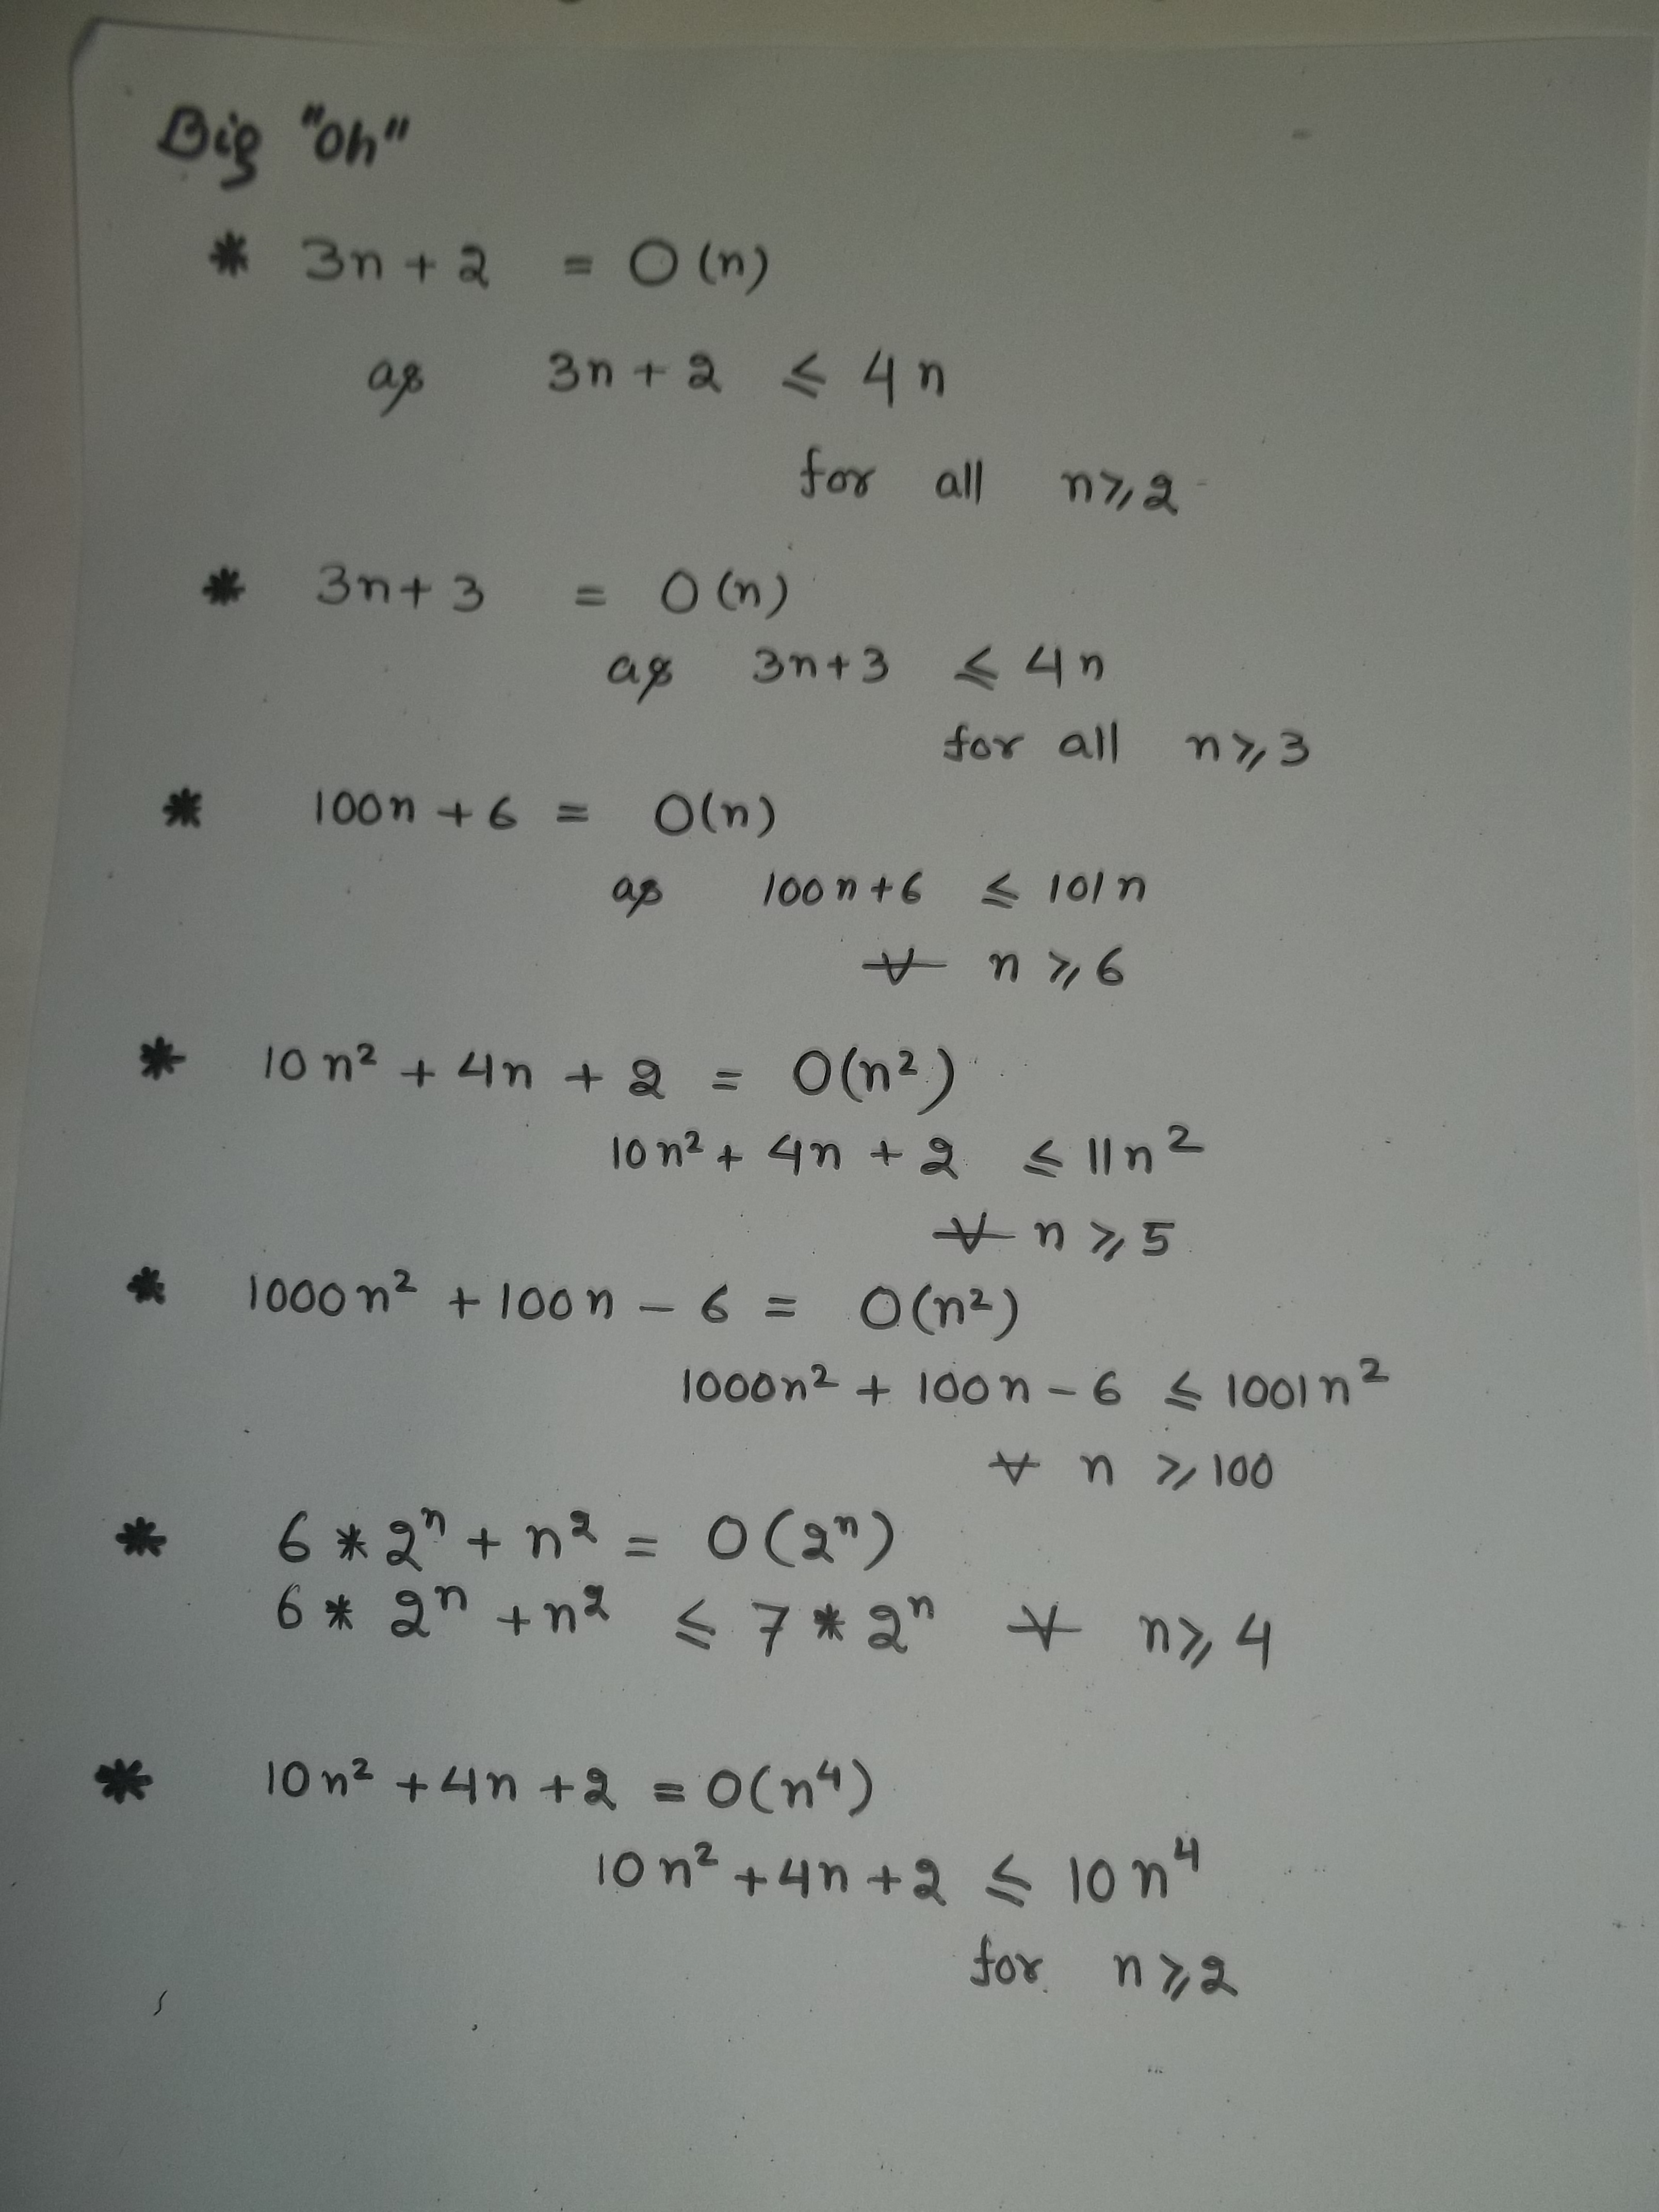 Big "Oh"
* 3n + 2 = O(n)
as 3n + 2 ≤ 4n
for all n ≥ 2
* 3n + 3 = O(n)
as 3n + 3 ≤ 4n
for all n ≥ 3
* 100n + 6 = O(n)
as 100n + 6 ≤ 101n
∀ n ≥ 6
* 10n² + 4n + 2 = O(n²)
10n² + 4n + 2 ≤ 11n²
∀ n ≥ 5
* 1000n² + 100n - 6 = O(n²)
1000n² + 100n - 6 ≤ 1001n²
∀ n ≥ 100
* 6 * 2ⁿ + n² = O(2ⁿ)
6 * 2ⁿ + n² ≤ 7 * 2ⁿ ∀ n ≥ 4
* 10n² + 4n + 2 = O(n⁴)
10n² + 4n + 2 ≤ 10n⁴
for n ≥ 2